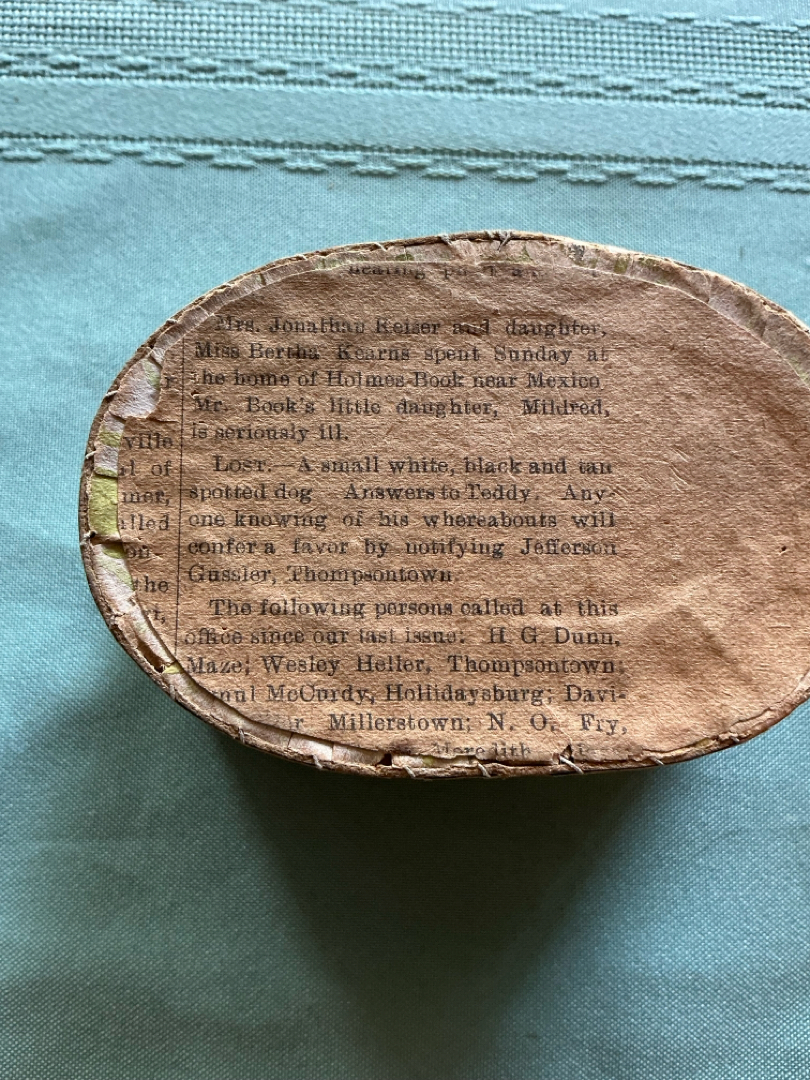 healing
Mrs. Jonathan Keiser and daughter,
Miss Bertha Kearns spent Sunday at
the home of Holmes Book near Mexico
Mr. Book's little daughter, Mildred,
is seriously ill.
ville
of
mer,
the
LOST.—A small white, black and tan
spotted dog Answers to Teddy. Any-
one knowing of his whereabouts will
confer a favor by notifying Jefferson
Gussler, Thompsontown.
The following persons called at this
office since our last issue: H. G. Dunn,
Maze; Wesley Heller, Thompsontown;
McCurdy, Hollidaysburg; Davi-
Millerstown; N. O. Fry,
Meredith